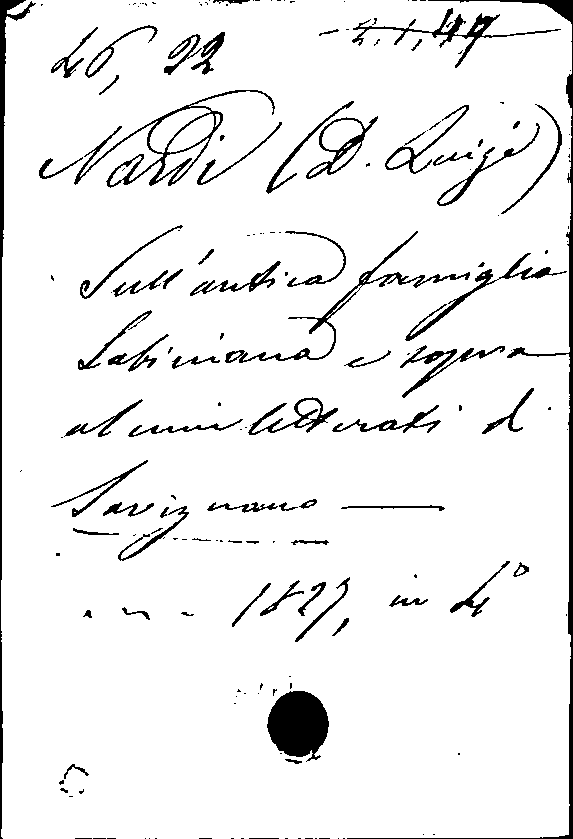 46, 22
2.1,49
Nardi (D. Luigi)
Sull'antica famiglia
Sabiniana e sopra
alcuni letterati di
Savignano —
1827, in 4°